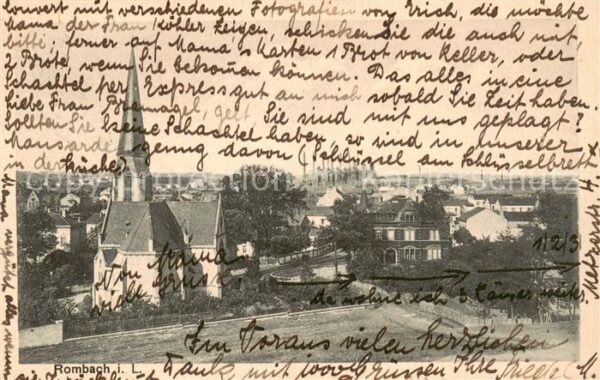 kouvert mit verschiedenen Fotografien von Erich, die möchte
Mama der Frau Köhler zeigen, schicken Sie die auch mit,
bitte; ferner auf Mama's Karten 1 Brot von Keller, oder
2 Brote, wenn Sie bekommen können. Das alles in eine
Schachtel per Expressgut an mich sobald Sie Zeit haben.
Liebe Frau gelt, Sie sind mit uns geplagt?
Sollten Sie keine Schachtel haben, so sind in unserer
Mansarde genug davon (Schlüssel am Schlüsselbrett
in der Küche)
Copyright by www.ansichtskarten-center.de
Von Mama
viele Grüsse
1/2/3
da wohne ich 3 Häuser
Im Voraus vielen herzlichen
Dank mit 1000 Grüssen Ihre
Rombach i. L.
Mama alles wenn